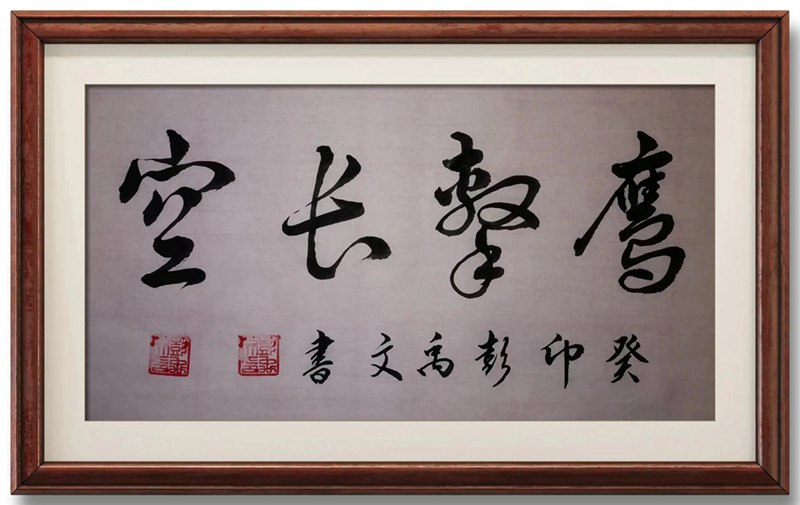 鹰擊长空
癸卯彭禹文書